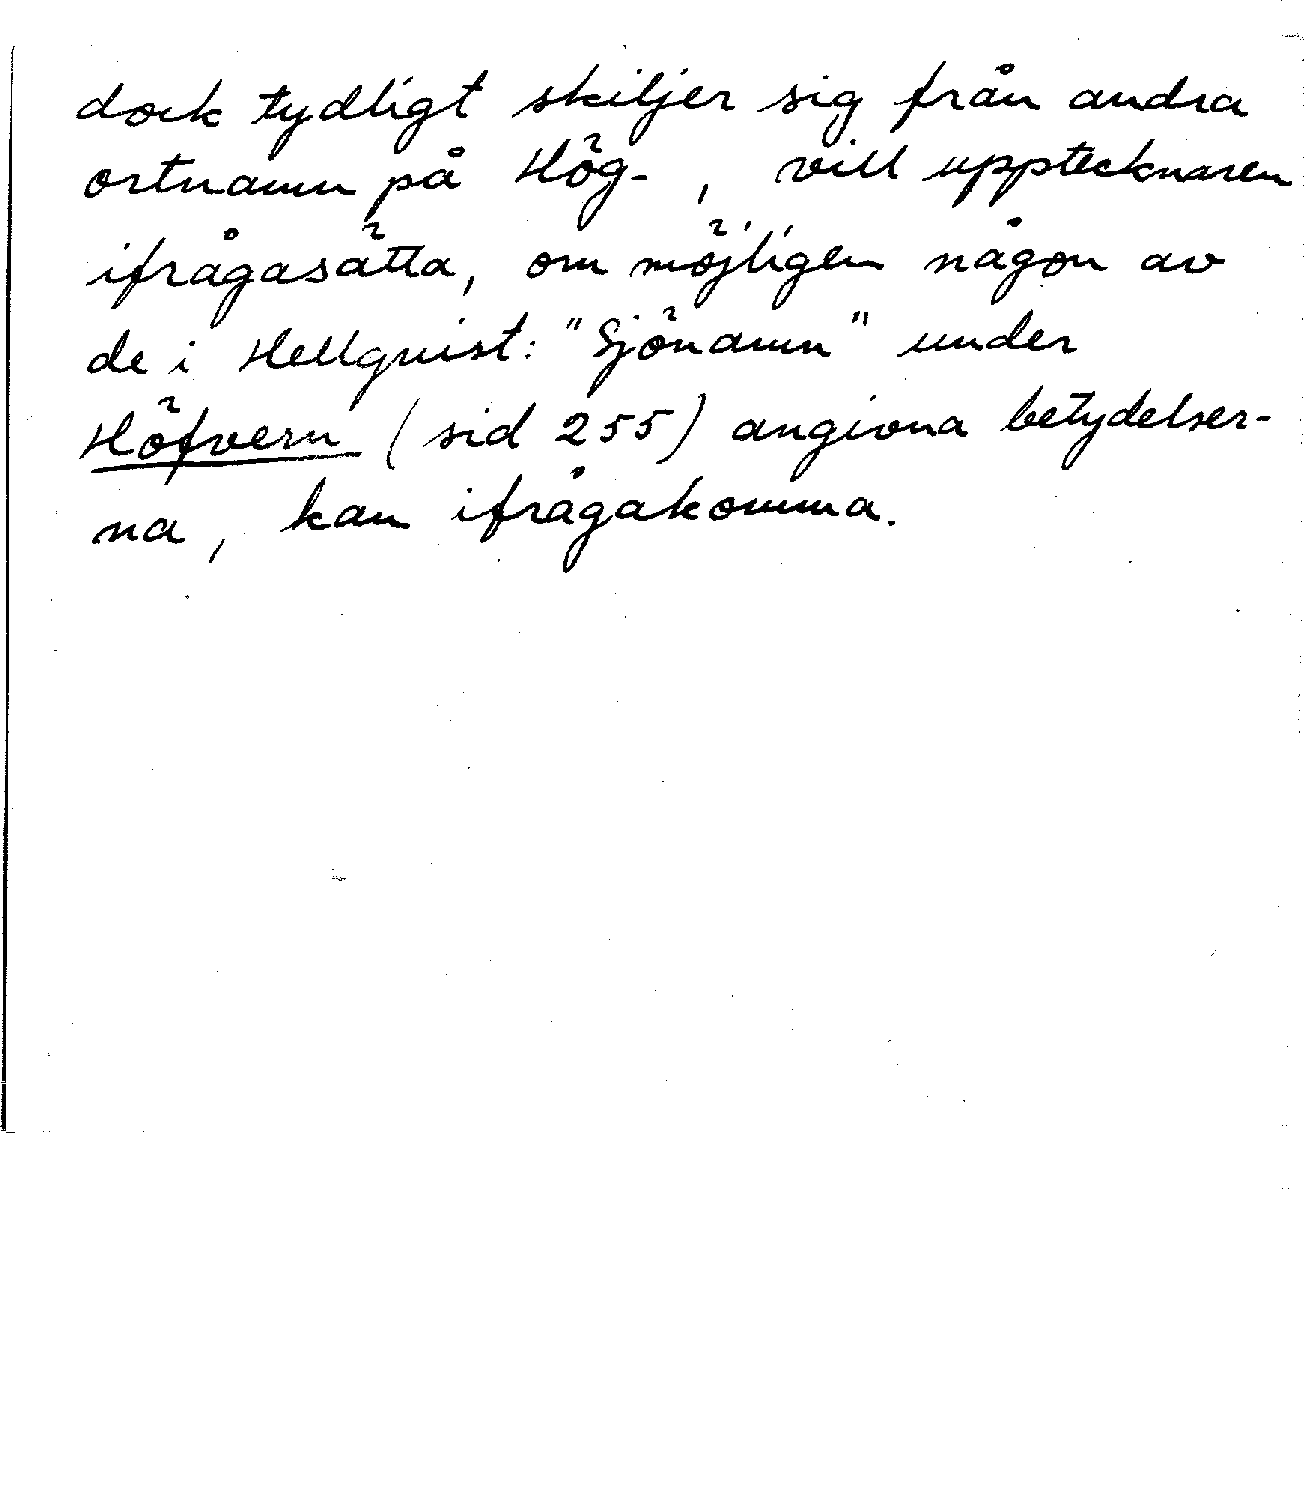 dock tydligt skiljer sig från andra
ortnamn på Hög-, vill upptecknaren
ifrågasätta, om möjligen någon av
de i Hellquist: "Sjönamn" under
Höfvern (sid 255) angivna betydelser-
na, kan ifrågakomma.